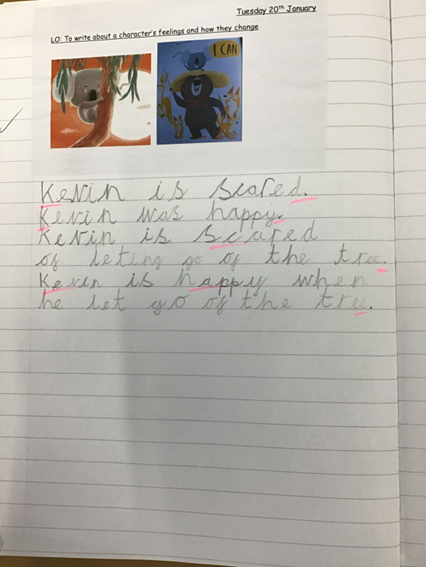 Tuesday 20th January
LO: To write about a character's feelings and how they change
I CAN
Kevin is scared.
Kevin was happy.
Kevin is scared
of leting go of the tree.
Kevin is happy when
he let go of the tree.